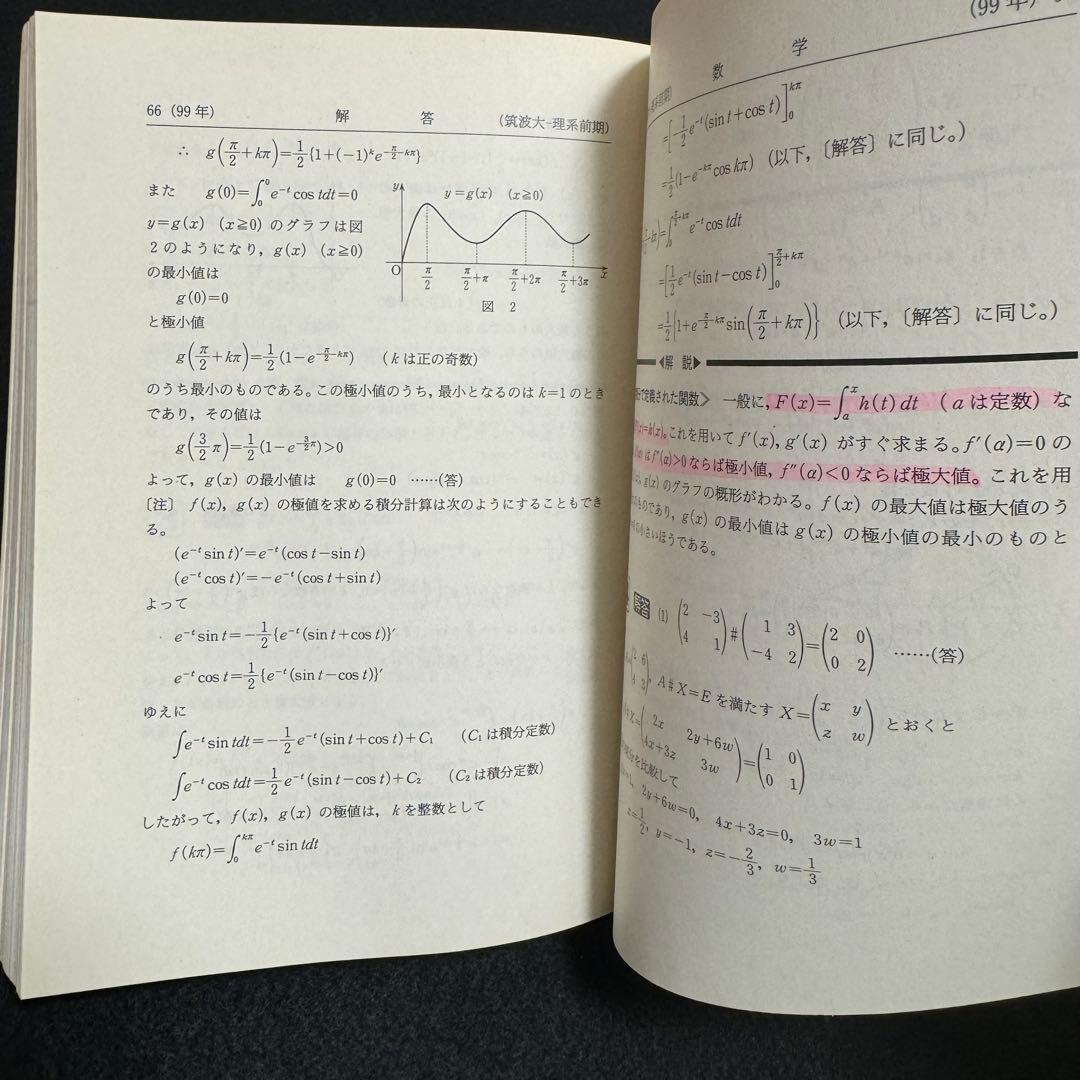 66 (99年) 解 答 (筑波大-理系前期)
∴ g(π/2+kπ)=1/2{1+(-1)^k e^{-π/2-kπ}}
また g(0)=∫_0^0 e^{-t} cos tdt=0
y=g(x) (x≧0) のグラフは図
2のようになり, g(x) (x≧0)
の最小値は
g(0)=0
と極小値
y
y=g(x) (x≧0)
O π/2 π/2+π π/2+2π π/2+3π x
図 2
g(π/2+kπ)=1/2(1-e^{-π/2-kπ}) (kは正の奇数)
のうち最小のものである。この極小値のうち, 最小となるのは k=1 のとき
であり, その値は
g(3/2π)=1/2(1-e^{-3/2π})>0
よって, g(x) の最小値は g(0)=0 ……(答)
〔注〕 f(x), g(x) の極値を求める積分計算は次のようにすることもでき
る。
(e^{-t} sin t)′=e^{-t}(cos t-sin t)
(e^{-t} cos t)′=-e^{-t}(cos t+sin t)
よって
e^{-t} sin t=-1/2{e^{-t}(sin t+cos t)}′
e^{-t} cos t=1/2{e^{-t}(sin t-cos t)}′
ゆえに
∫e^{-t} sin tdt=-1/2 e^{-t}(sin t+cos t)+C₁ (C₁は積分定数)
∫e^{-t} cos tdt=1/2 e^{-t}(sin t-cos t)+C₂ (C₂は積分定数)
したがって, f(x), g(x) の極値は, k を整数として
f(kπ)=∫_0^{kπ} e^{-t} sin tdt
(99年)
数 学
=[-1/2 e^{-t}(sin t+cos t)]_0^{kπ}
=1/2(1-e^{-kπ} cos kπ) (以下,〔解答〕に同じ。)
=∫_0^{π/2+kπ} e^{-t} cos tdt
=[1/2 e^{-t}(sin t-cos t)]_0^{π/2+kπ}
=1/2{1+e^{-π/2-kπ} sin(π/2+kπ)} (以下,〔解答〕に同じ。)
◀解 説▶
で定義された関数〉 一般に, F(x)=∫_a^x h(t)dt (aは定数) な
=h(x)。これを用いて f′(x), g′(x) がすぐ求まる。f′(α)=0 の
は f″(α)>0 ならば極小値, f″(α)<0 ならば極大値。これを用
g(x) のグラフの概形がわかる。f(x) の最大値は極大値のう
のものであり, g(x) の最小値は g(x) の極小値の最小のものと
の小さいほうである。
解答 (1) (2 -3; 4 1)#(1 3; -4 2)=(2 0; 0 2) ……(答)
A#X=E を満たす X=(x y; z w) とおくと
X=(2x 2y+6w; 4x+3z 3w)=(1 0; 0 1)
を比較して
2y+6w=0, 4x+3z=0, 3w=1
1/2, y=-1, z=-2/3, w=1/3